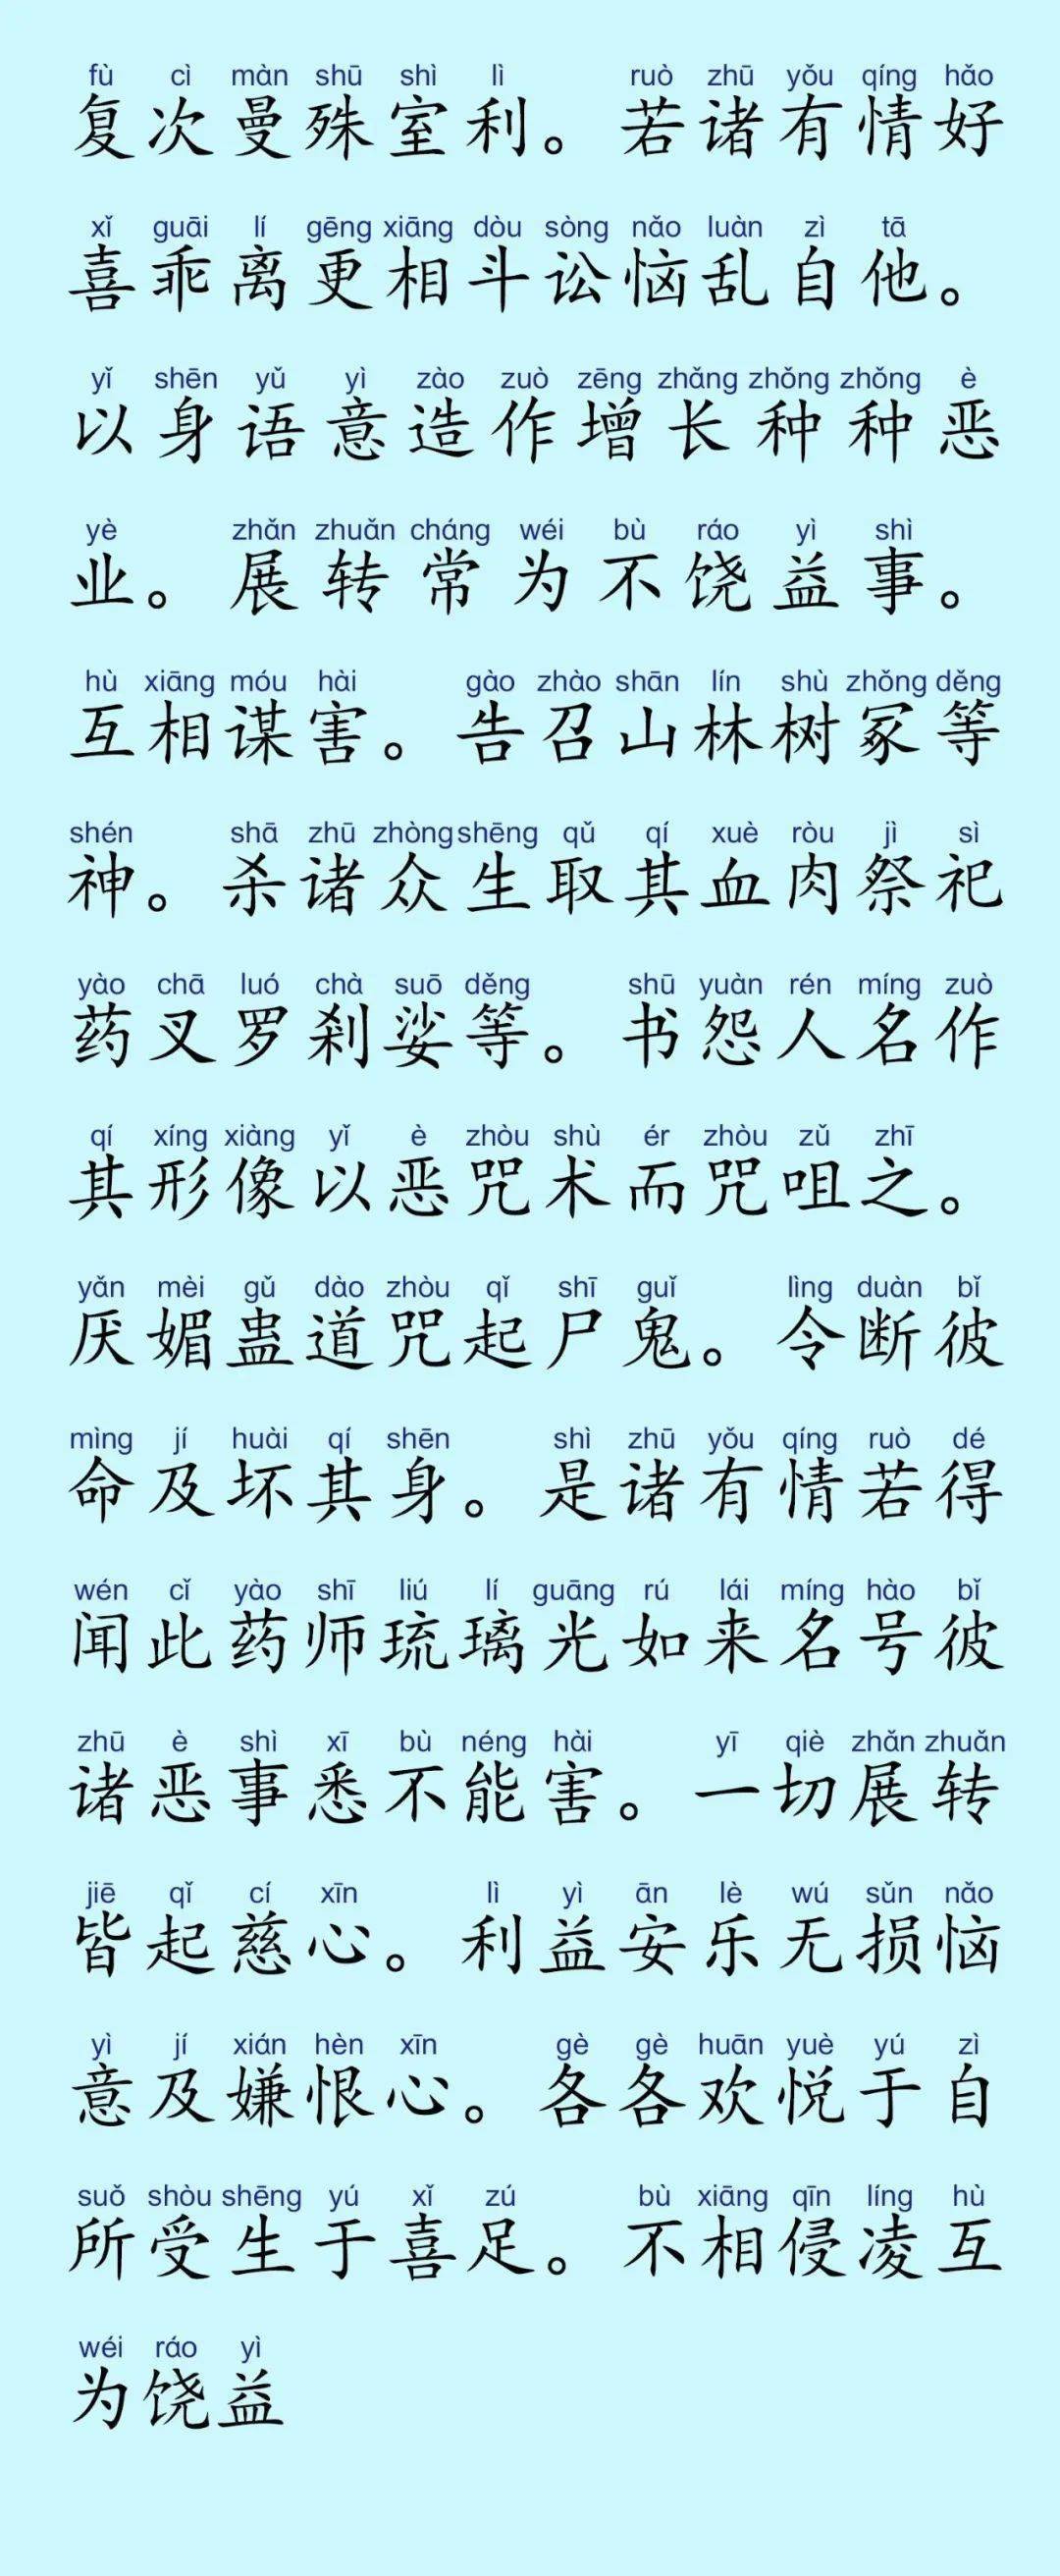 fù cì màn shū shì lì ruò zhū yǒu qíng hǎo
复次曼殊室利。若诸有情好
xǐ guāi lí gēng xiāng dòu sòng nǎo luàn zì tā
喜乖离更相斗讼恼乱自他。
yǐ shēn yǔ yì zào zuò zēng zhǎng zhǒng zhǒng è
以身语意造作增长种种恶
yè zhǎn zhuǎn cháng wéi bù ráo yì shì
业。展转常为不饶益事。
hù xiāng móu hài gào zhào shān lín shù zhǒng děng
互相谋害。告召山林树冢等
shén shā zhū zhòng shēng qǔ qí xuè ròu jì sì
神。杀诸众生取其血肉祭祀
yào chā luó chà suō děng shū yuàn rén míng zuò
药叉罗刹娑等。书怨人名作
qí xíng xiàng yǐ è zhòu shù ér zhòu zǔ zhī
其形像以恶咒术而咒咀之。
yǎn mèi gǔ dào zhòu qǐ shī guǐ lìng duàn bǐ
厌媚蛊道咒起尸鬼。令断彼
mìng jí huài qí shēn shì zhū yǒu qíng ruò dé
命及坏其身。是诸有情若得
wén cǐ yào shī liú lí guāng rú lái míng hào bǐ
闻此药师琉璃光如来名号彼
zhū è shì xī bù néng hài yī qiè zhǎn zhuǎn
诸恶事悉不能害。一切展转
jiē qǐ cí xīn lì yì ān lè wú sǔn nǎo
皆起慈心。利益安乐无损恼
yì jí xián hèn xīn gè gè huān yuè yú zì
意及嫌恨心。各各欢悦于自
suǒ shòu shēng yú xǐ zú bù xiāng qīn líng hù
所受生于喜足。不相侵凌互
wéi ráo yì
为饶益